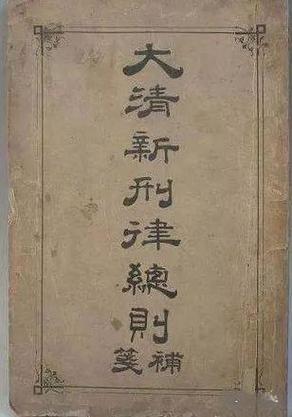 大清新刑律總則
補箋